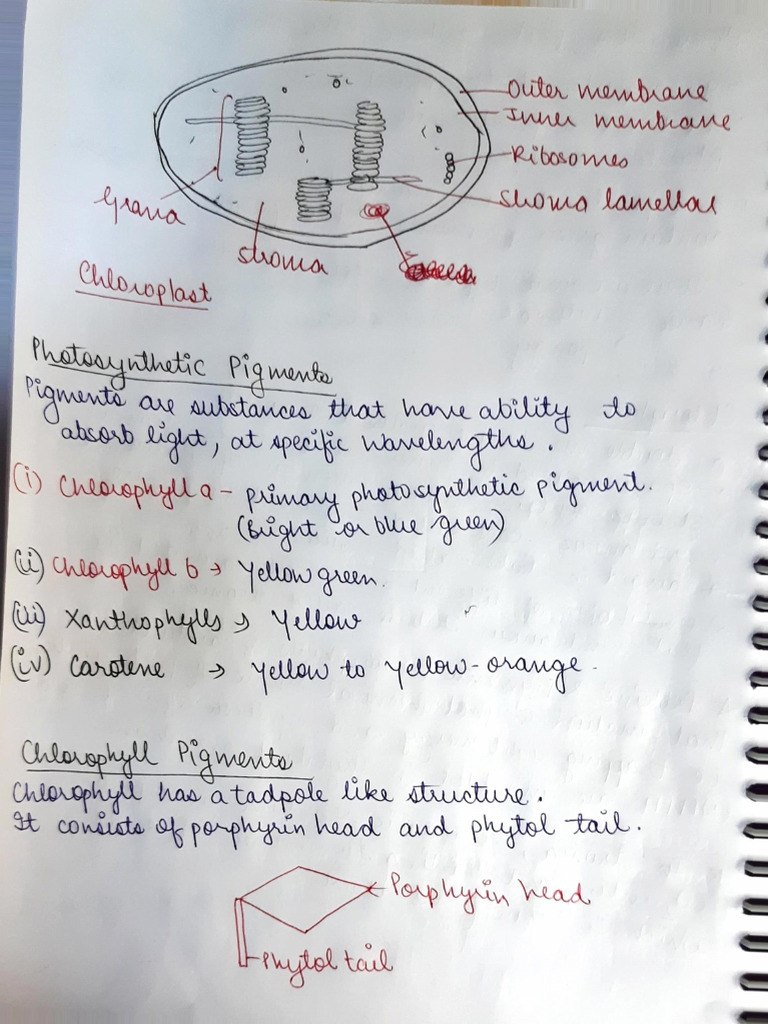 Outer membrane
Inner membrane
Ribosomes
Stroma lamellae
Grana
stroma
Chloroplast
Photosynthetic Pigments
Pigments are substances that have ability to
absorb light, at specific wavelengths.
(i) Chlorophyll a - primary photosynthetic pigment.
(Bright or blue green)
(ii) Chlorophyll b → Yellow green.
(iii) Xanthophylls → Yellow
(iv) Carotene → Yellow to Yellow-orange.
Chlorophyll Pigments
Chlorophyll has a tadpole like structure.
It consists of porphyrin head and phytol tail.
Porphyrin head
Phytol tail